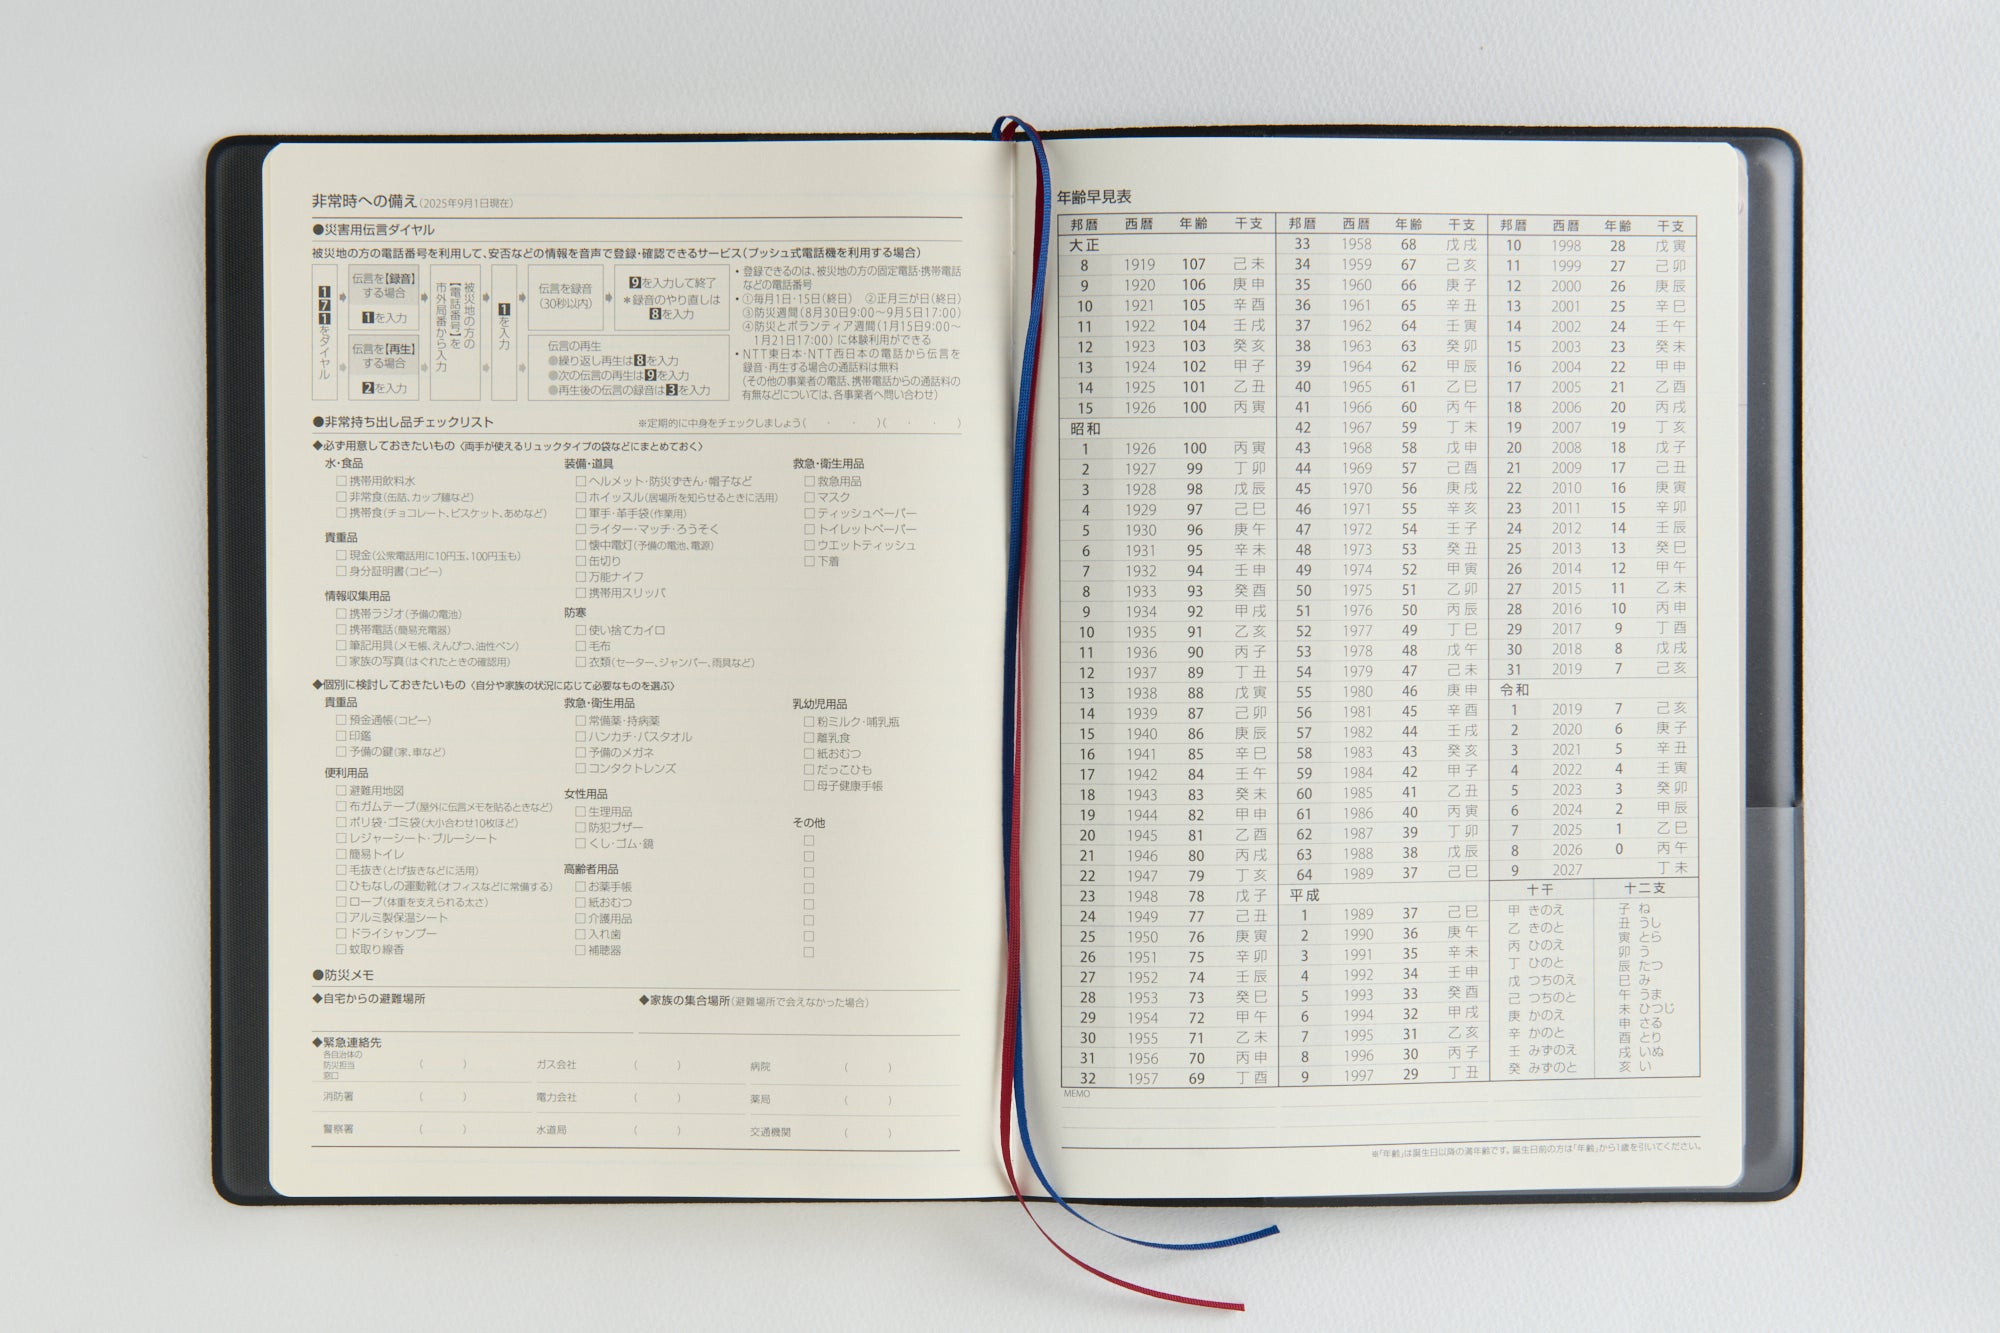 非常時への備え(2025年9月1日現在)
●災害用伝言ダイヤル
被災地の方の電話番号を利用して、安否などの情報を音声で登録・確認できるサービス(プッシュ式電話機を利用する場合)
171をダイヤル
伝言を【録音】
する場合
1を入力
伝言を【再生】
する場合
2を入力
被災地の方の
【電話番号】を
市外局番から入力
1を入力
伝言を録音
(30秒以内)
9を入力して終了
*録音のやり直しは
8を入力
伝言の再生
●繰り返し再生は8を入力
●次の伝言の再生は9を入力
●再生後の伝言の録音は3を入力
・登録できるのは、被災地の方の固定電話・携帯電話
などの電話番号
・①毎月1日・15日(終日) ②正月三が日(終日)
③防災週間(8月30日9:00〜9月5日17:00)
④防災とボランティア週間(1月15日9:00〜
1月21日17:00)に体験利用ができる
・NTT東日本・NTT西日本の電話から伝言を
録音・再生する場合の通話料は無料
(その他の事業者の電話、携帯電話からの通話料の
有無などについては、各事業者へ問い合わせ)
●非常持ち出し品チェックリスト ※定期的に中身をチェックしましょう( ・ ・ )( ・ ・ )
◆必ず用意しておきたいもの〈両手が使えるリュックタイプの袋などにまとめておく〉
水・食品
□携帯用飲料水
□非常食(缶詰、カップ麺など)
□携帯食(チョコレート、ビスケット、あめなど)
貴重品
□現金(公衆電話用に10円玉、100円玉も)
□身分証明書(コピー)
情報収集用品
□携帯ラジオ(予備の電池)
□携帯電話(簡易充電器)
□筆記用具(メモ帳、えんぴつ、油性ペン)
□家族の写真(はぐれたときの確認用)
装備・道具
□ヘルメット・防災ずきん・帽子など
□ホイッスル(居場所を知らせるときに活用)
□軍手・革手袋(作業用)
□ライター・マッチ・ろうそく
□懐中電灯(予備の電池、電源)
□缶切り
□万能ナイフ
□携帯用スリッパ
防寒
□使い捨てカイロ
□毛布
□衣類(セーター、ジャンパー、雨具など)
救急・衛生用品
□救急用品
□マスク
□ティッシュペーパー
□トイレットペーパー
□ウエットティッシュ
□下着
◆個別に検討しておきたいもの〈自分や家族の状況に応じて必要なものを選ぶ〉
貴重品
□預金通帳(コピー)
□印鑑
□予備の鍵(家、車など)
便利用品
□避難用地図
□布ガムテープ(屋外に伝言メモを貼るときなど)
□ポリ袋・ゴミ袋(大小合わせ10枚ほど)
□レジャーシート・ブルーシート
□簡易トイレ
□毛抜き(とげ抜きなどに活用)
□ひもなしの運動靴(オフィスなどに常備する)
□ロープ(体重を支えられる太さ)
□アルミ製保温シート
□ドライシャンプー
□蚊取り線香
救急・衛生用品
□常備薬・持病薬
□ハンカチ・バスタオル
□予備のメガネ
□コンタクトレンズ
女性用品
□生理用品
□防犯ブザー
□くし・ゴム・鏡
高齢者用品
□お薬手帳
□紙おむつ
□介護用品
□入れ歯
□補聴器
乳幼児用品
□粉ミルク・哺乳瓶
□離乳食
□紙おむつ
□だっこひも
□母子健康手帳
その他
□
□
□
□
□
□
□
□
●防災メモ
◆自宅からの避難場所 ◆家族の集合場所(避難場所で会えなかった場合)
◆緊急連絡先
各自治体の
防災担当
窓口 ( ) ガス会社 ( ) 病院 ( )
消防署 ( ) 電力会社 ( ) 薬局 ( )
警察署 ( ) 水道局 ( ) 交通機関 ( )
年齢早見表
邦暦 西暦 年齢 干支
大正
8 1919 107 己未
9 1920 106 庚申
10 1921 105 辛酉
11 1922 104 壬戌
12 1923 103 癸亥
13 1924 102 甲子
14 1925 101 乙丑
15 1926 100 丙寅
昭和
1 1926 100 丙寅
2 1927 99 丁卯
3 1928 98 戊辰
4 1929 97 己巳
5 1930 96 庚午
6 1931 95 辛未
7 1932 94 壬申
8 1933 93 癸酉
9 1934 92 甲戌
10 1935 91 乙亥
11 1936 90 丙子
12 1937 89 丁丑
13 1938 88 戊寅
14 1939 87 己卯
15 1940 86 庚辰
16 1941 85 辛巳
17 1942 84 壬午
18 1943 83 癸未
19 1944 82 甲申
20 1945 81 乙酉
21 1946 80 丙戌
22 1947 79 丁亥
23 1948 78 戊子
24 1949 77 己丑
25 1950 76 庚寅
26 1951 75 辛卯
27 1952 74 壬辰
28 1953 73 癸巳
29 1954 72 甲午
30 1955 71 乙未
31 1956 70 丙申
32 1957 69 丁酉
邦暦 西暦 年齢 干支
33 1958 68 戊戌
34 1959 67 己亥
35 1960 66 庚子
36 1961 65 辛丑
37 1962 64 壬寅
38 1963 63 癸卯
39 1964 62 甲辰
40 1965 61 乙巳
41 1966 60 丙午
42 1967 59 丁未
43 1968 58 戊申
44 1969 57 己酉
45 1970 56 庚戌
46 1971 55 辛亥
47 1972 54 壬子
48 1973 53 癸丑
49 1974 52 甲寅
50 1975 51 乙卯
51 1976 50 丙辰
52 1977 49 丁巳
53 1978 48 戊午
54 1979 47 己未
55 1980 46 庚申
56 1981 45 辛酉
57 1982 44 壬戌
58 1983 43 癸亥
59 1984 42 甲子
60 1985 41 乙丑
61 1986 40 丙寅
62 1987 39 丁卯
63 1988 38 戊辰
64 1989 37 己巳
平成
1 1989 37 己巳
2 1990 36 庚午
3 1991 35 辛未
4 1992 34 壬申
5 1993 33 癸酉
6 1994 32 甲戌
7 1995 31 乙亥
8 1996 30 丙子
9 1997 29 丁丑
邦暦 西暦 年齢 干支
10 1998 28 戊寅
11 1999 27 己卯
12 2000 26 庚辰
13 2001 25 辛巳
14 2002 24 壬午
15 2003 23 癸未
16 2004 22 甲申
17 2005 21 乙酉
18 2006 20 丙戌
19 2007 19 丁亥
20 2008 18 戊子
21 2009 17 己丑
22 2010 16 庚寅
23 2011 15 辛卯
24 2012 14 壬辰
25 2013 13 癸巳
26 2014 12 甲午
27 2015 11 乙未
28 2016 10 丙申
29 2017 9 丁酉
30 2018 8 戊戌
31 2019 7 己亥
令和
1 2019 7 己亥
2 2020 6 庚子
3 2021 5 辛丑
4 2022 4 壬寅
5 2023 3 癸卯
6 2024 2 甲辰
7 2025 1 乙巳
8 2026 0 丙午
9 2027 丁未
十干
甲 きのえ
乙 きのと
丙 ひのえ
丁 ひのと
戊 つちのえ
己 つちのと
庚 かのえ
辛 かのと
壬 みずのえ
癸 みずのと
十二支
子 ね
丑 うし
寅 とら
卯 う
辰 たつ
巳 み
午 うま
未 ひつじ
申 さる
酉 とり
戌 いぬ
亥 い
MEMO
※「年齢」は誕生日以降の満年齢です。誕生日前の方は「年齢」から1歳を引いてください。